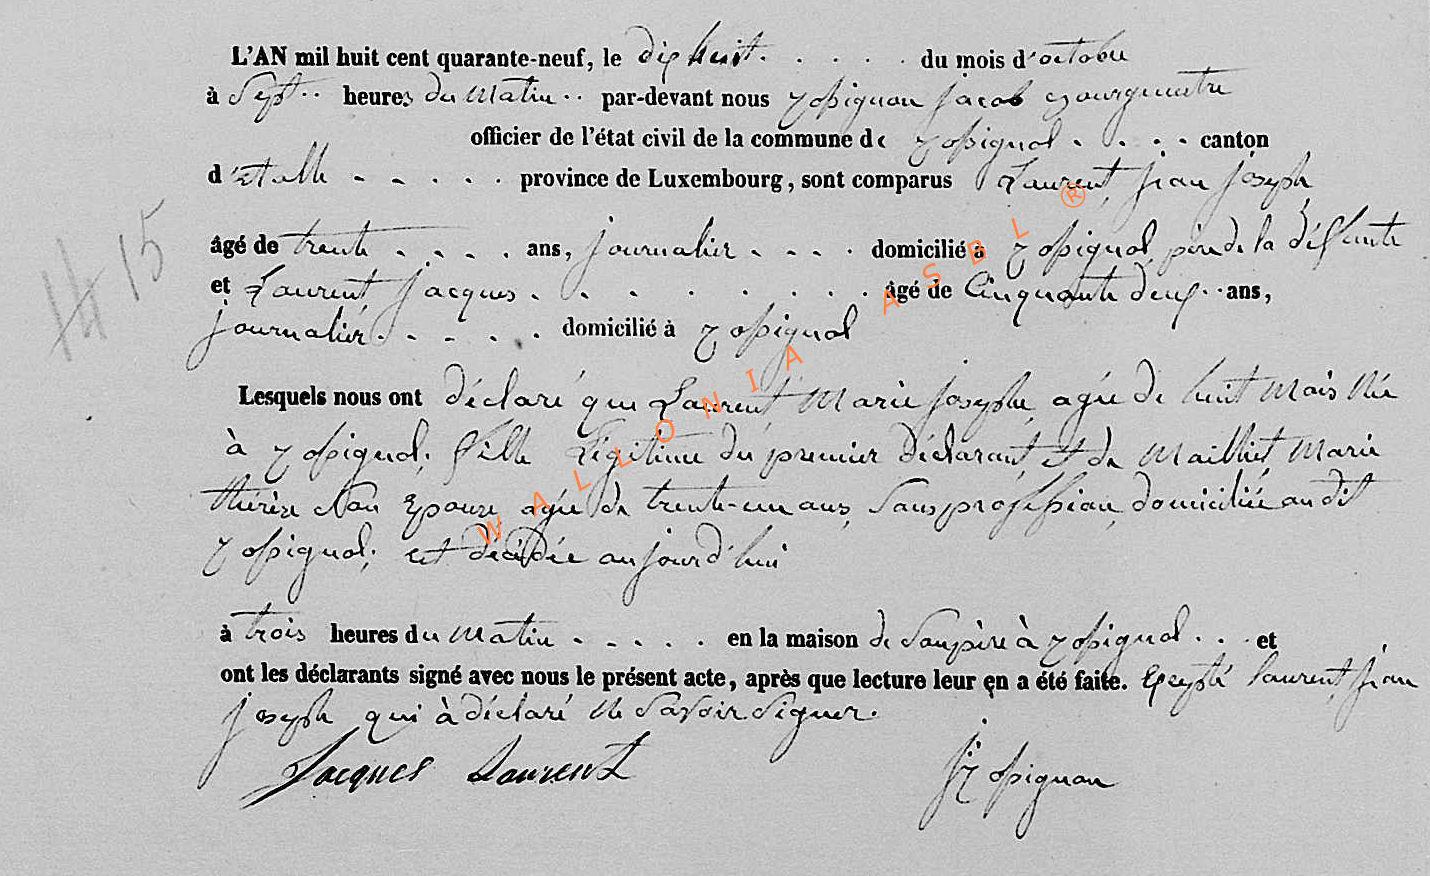 L'AN mil huit cent quarante-neuf, le dix huit. . . . . du mois d'octobre
à Sept .. heures du Matin .. par-devant nous Rossignon Jacob Bourgmestre
officier de l'état civil de la commune de Rossignol . . . . canton
d'Etalle - - - - . province de Luxembourg, sont comparus Laurent, Jean Joseph
âgé de trente . . . . ans, journalier - - - . domicilié à Rossignol, père de la défunte
et Laurent, Jacques . . . . . . . . . âgé de Cinquante deux .. ans,
journalier. - - - . . domicilié à Rossignol
# 15
Lesquels nous ont déclaré que Laurent Marie Josephe, agée de huit Mois Née
à Rossignol, fille Légitime du premier déclarant, et de Maillet Marie
thérèse son Epouse agée de trente-un ans, Sans profession, domiciliée au dit
Rossignol; est décédée aujourd'hui
à trois heures du Matin - . . . . en la maison de Son père à Rossignol . . . et
ont les déclarants signé avec nous le présent acte, après que lecture leur en a été faite. Excepté Laurent, Jean
Joseph qui à déclaré Ne Savoir Signer.
Jacques Laurent
J Rossignon
WALLONIA ASBL ®